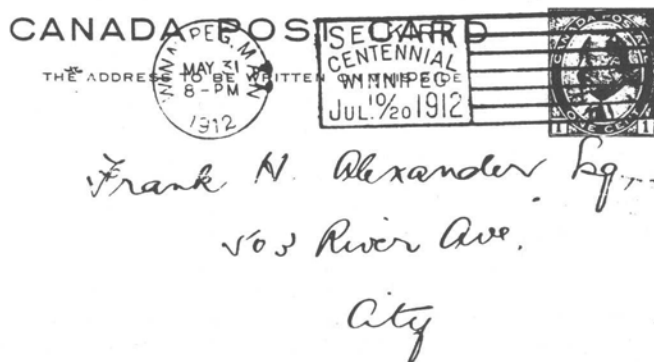 CANADA POST CARD
THE ADDRESS TO BE WRITTEN ON THIS SIDE
WINNIPEG. MAN
MAY 31
8-PM
1912
SELKIRK
CENTENNIAL
WINNIPEG
JUL. 10/20 1912
CANADA POSTAGE
ONE CENT
1 1
Frank N. Alexander Esq.,
503 River Ave.
City